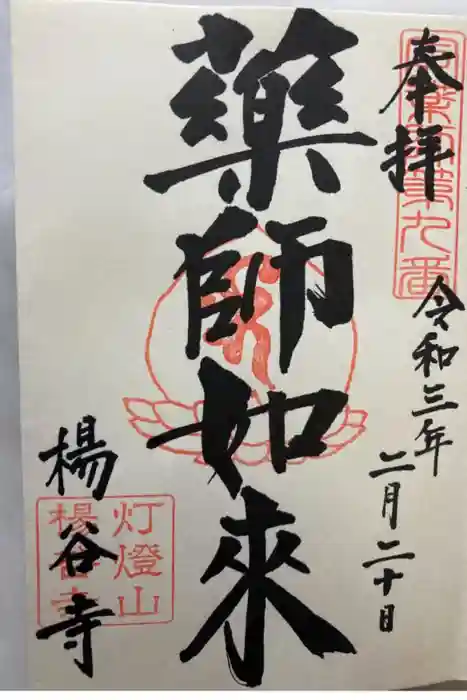 奉拝
薬師第九番
令和三年
二月二十日
藥師如來
灯燈山
楊谷寺
楊谷寺